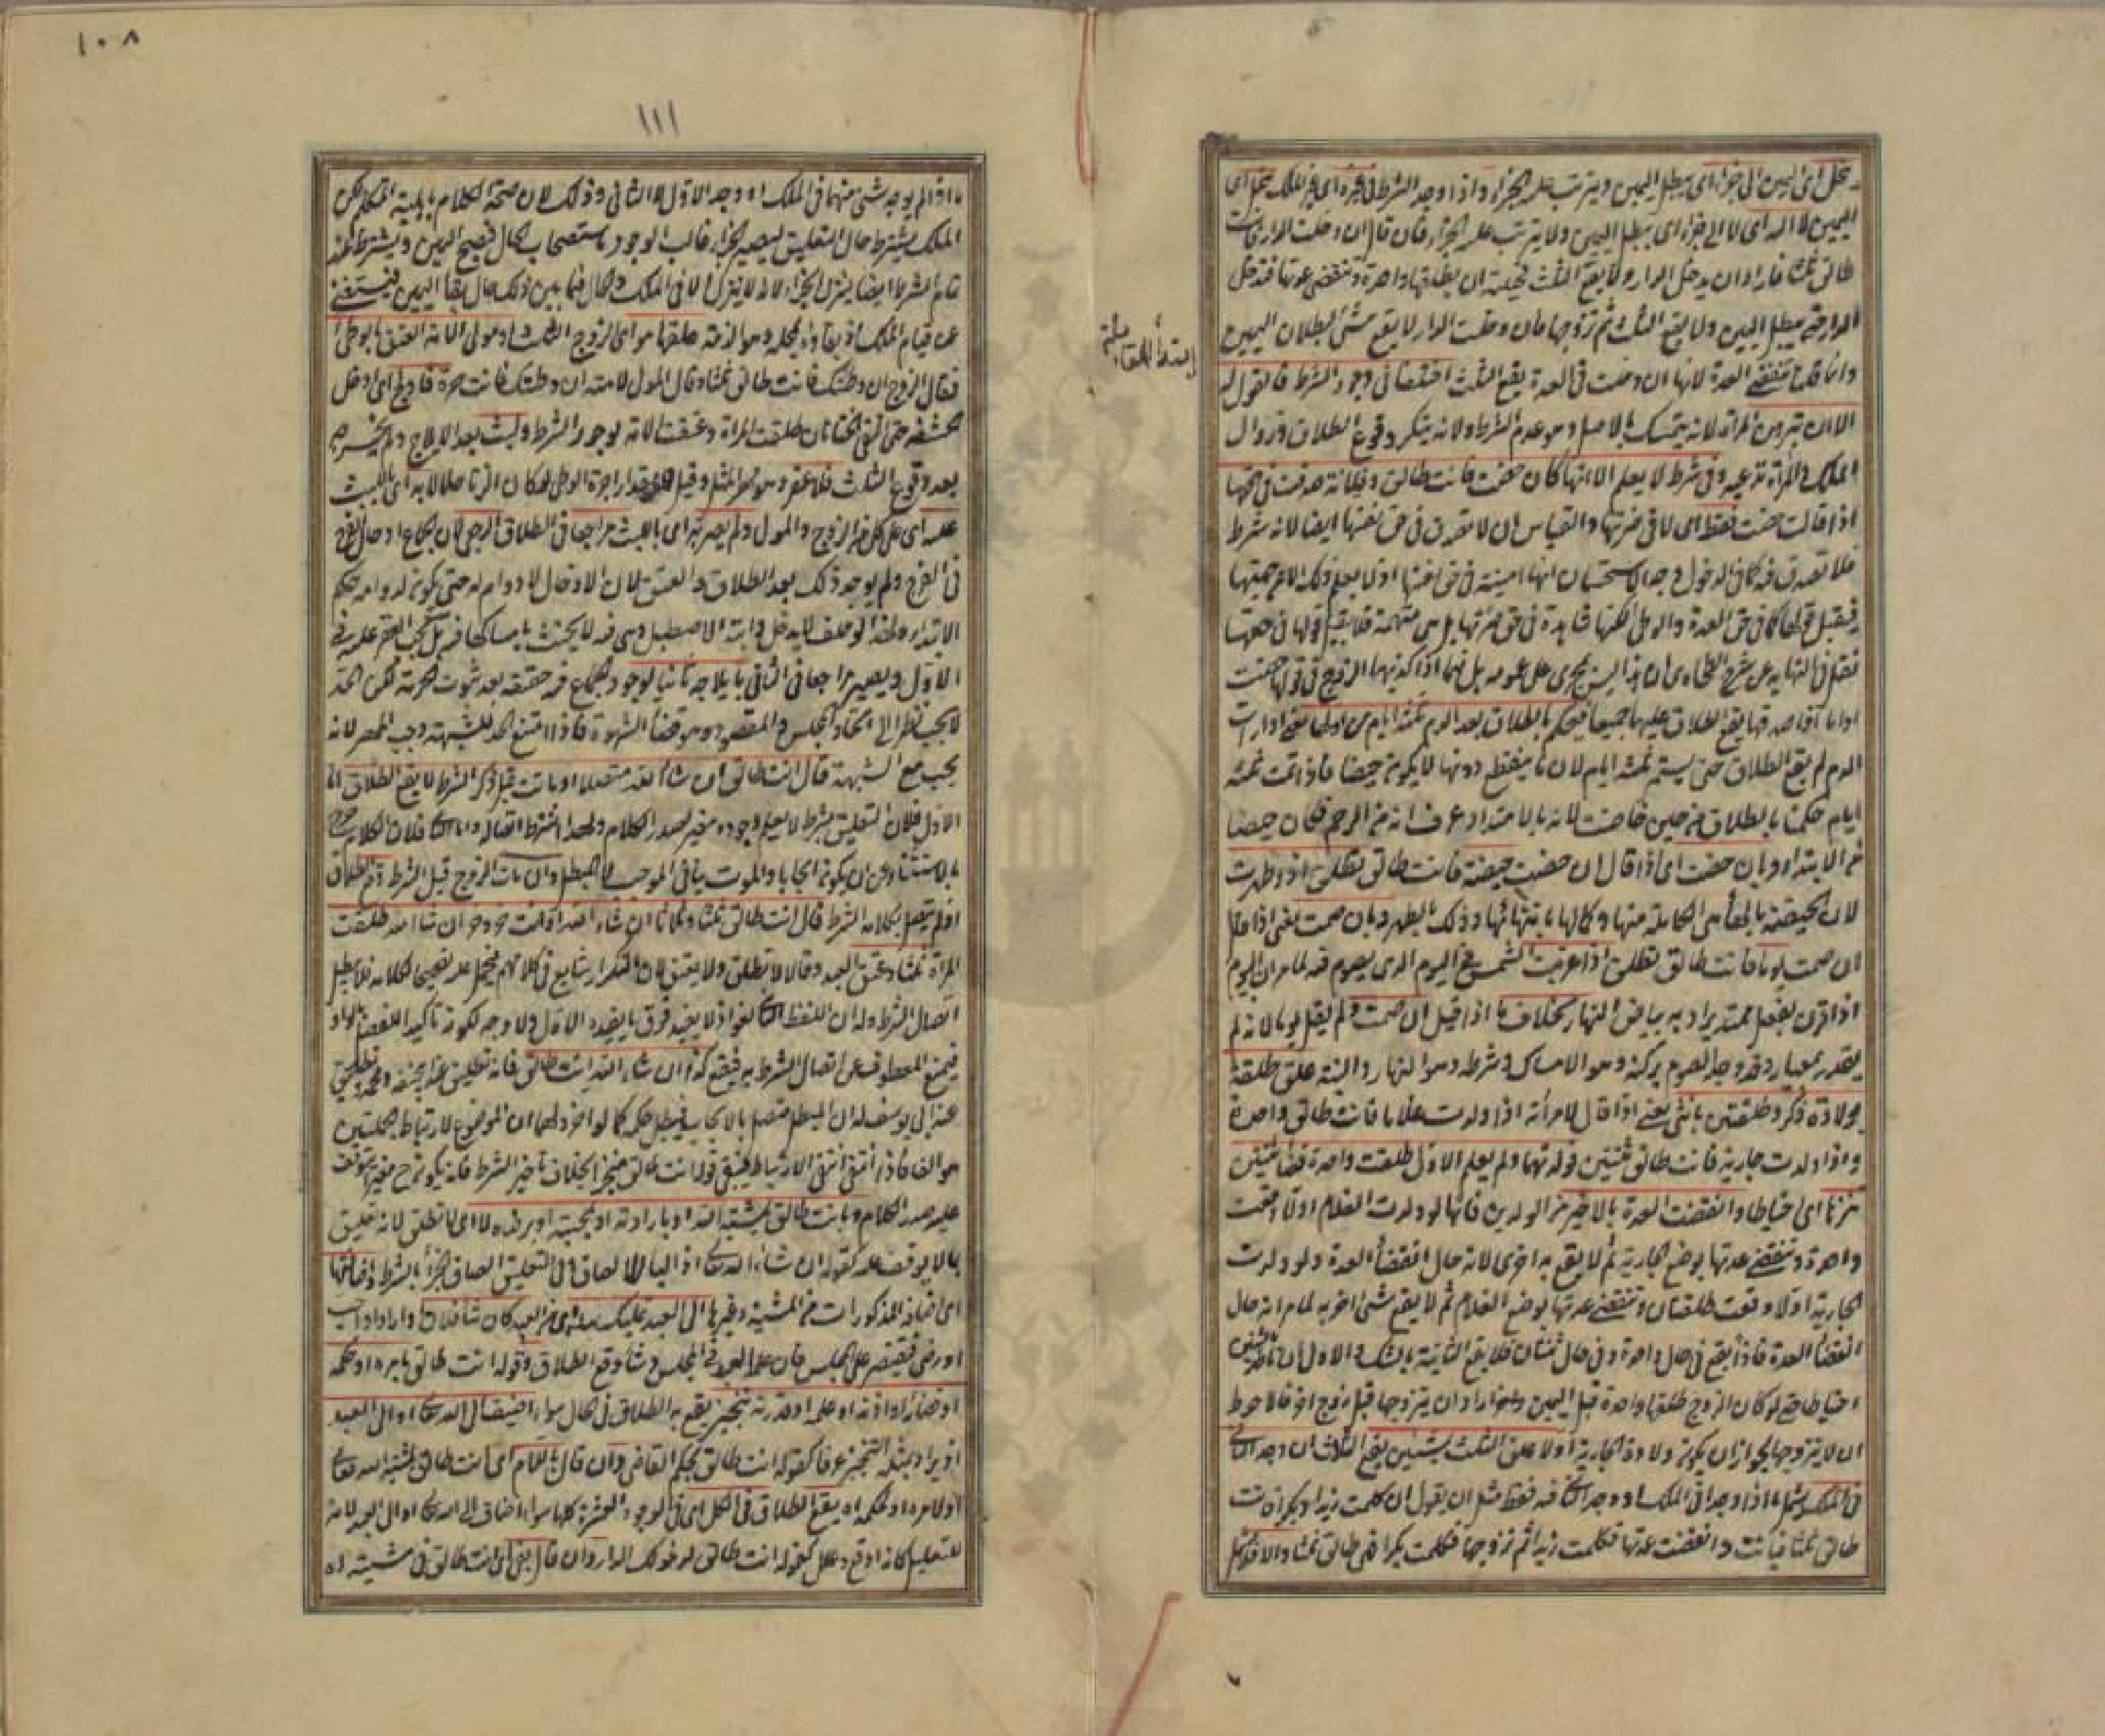 تنحل اى اليمين الى جزاء اى يبطل اليمين ويترتب عليه الجزاء واذا وجد الشرط فى غيره اى غير الملك تنحل اى
اليمين لا اليه اى لا الى جزاء اى يبطل اليمين ولا يترتب عليه الجزاء فان قال ان دخلت الدار فانت
طالق ثلثا فاراد ان يدخل الدار ولا يقع الثلث فحيلته ان يطلقها واحدة وتنقضى عدتها فتدخل
الدار حتى يبطل اليمين ولا يقع الثلث ثم تزوجها فان دخلت الدار لا يقع شئ لبطلان اليمين
وانما قلنا تنقضى العدة لانها ان دخلت فى العدة يقع الثلث اختلفا فى وجود الشرط فالقول له
الا ان تبرهن المراة لانه يتمسك بالاصل وهو عدم الشرط ولانه ينكر وقوع الطلاق وزوال
الملك والمراة تدعيه وفى شرط لا يعلم الا منها كان حضت فانت طالق وفلانة صدقت فى حقها
اذا قالت حضت فقط اى لا فى ضرتها والقياس ان لا تصدق فى حق نفسها ايضا لانه شرط
فلا تصدق فيه كما فى الدخول وجه الاستحسان انها امينة فى حق نفسها اذ لا يعلم ذلك الا من جهتها
فيقبل قولها كما فى حق العدة والوطى لكنها شاهدة فى حق ضرتها بل هى متهمة فلا يقبل قولها فى حقها
نقل فى النهاية عن شرح الطحاوى ان هذا ليس يجرى على عمومه بل فيما اذا كذبها الزوج فى قولها حضت
واما اذا صدقها يقع الطلاق عليهما جميعا فيحكم بالطلاق بعد الدم ثلثة ايام من اولها يعنى اذا رات
الدم لم يقع الطلاق حتى يستمر ثلثة ايام لان ما ينقطع دونها لا يكون حيضا فاذا تمت ثلثة
ايام حكمنا بالطلاق من حين حاضت لانه بالامتداد عرف انه من الرحم فكان حيضا
من الابتداء وبان حضت اى اذا قال ان حضت حيضة فانت طالق تطلق اذا طهرت
لان الحيضة بالهاء هى الكاملة منها وكمالها بانتهائها وذلك بالطهر وبان صمت يعنى اذا قال
ان صمت يوما فانت طالق تطلق اذا غربت الشمس فى اليوم الذى يصوم فيه لما مر ان اليوم
اذا قرن بفعل ممتد يراد به بياض النهار بخلاف ما اذا قيل ان صمت ولم يقل يوما لانه لم
يقدر بمعيار وقد وجد الصوم بركنه وهو الامساك وشرطه وهو النهار والنية علق طلقة
بولادة ذكر وطلقتين بانثى يعنى اذا قال لامرأته اذا ولدت غلاما فانت طالق واحدة
واذا ولدت جارية فانت طالق ثنتين فولدتهما ولم يعلم الاول طلقت واحدة قضاء وثنتين
تنزها اى احتياطا وانقضت العدة بالاخير من الولدين فانها لو ولدت الغلام اولا وقعت
واحدة وتنقضى عدتها بوضع الجارية ثم لا يقع به اخرى لانه حال انقضاء العدة ولو ولدت
الجارية اولا وقعت طلقتان وتنقضى عدتها بوضع الغلام ثم لا يقع شئ اخر به لما مر انه حال
انقضاء العدة فاذا يقع فى حال واحدة وفى حال ثنتان فلا يقع الثانية بالشك والاولى ان ياخذ بثنتين
احتياطا حتى لو كان الزوج طلقها واحدة قبل اليمين واراد ان يتزوجها قبل زوج اخر فالاحوط
ان لا يتزوجها لجواز ان يكون ولادة الجارية اولا علق الثلث بشيئين يقع الثلاث ان وجد الثانى
فى الملك يشمل ما اذا وجدا فى الملك او وجد الثانى فيه فقط مثل ان يقول ان كلمت زيدا وبكرا فانت
طالق ثلثا فبانت وانقضت عدتها فكلمت زيدا ثم تزوجها فكلمت بكرا فهى طالق ثلثا والا فلا يشمل
ابتداء المقابلة
١٠٨
١١١
ما اذا لم يوجد شئ منهما فى الملك او وجد الاول لا الثانى وذلك لان صحة الكلام باهلية المتكلم لكن
الملك يشترط حال التعليق ليصير الجزاء غالب الوجود باستصحاب الحال فيصح اليمين ويشترط عند
تمام الشرط ايضا لينزل الجزاء لانه لا ينزل الا فى الملك والحال فيما بين ذلك حال بقاء اليمين فيستغنى
عن قيام الملك اذ بقاؤه بمحله وهو الذمة علقها هو اى الزوج الثلث او مولى الامة العتق بالوطئ
فقال الزوج ان وطئتك فانت طالق ثلثا وقال المولى لامته ان وطئتك فانت حرة فاولج اى ادخل
الحشفة حتى التقى الختانان طلقت المراة وعتقت الامة لوجود الشرط ولبث بعد الايلاج ولم يخرجه
بعد وقوع الثلث فلا عقر وهو مهر المثل وقيل هو مقدار اجرة الوطى لو كان الزنا حلالا به اى باللبث
عليه اى على كل من الزوج والمولى ولم يصر به اى باللبث مراجعا فى الطلاق الرجعى لان الجماع ادخال الفرج
فى الفرج ولم يوجد ذلك بعد الطلاق والعتق لان الادخال لا دوام له حتى يكون لدوامه حكم
الابتداء ولهذا لو حلف لا يدخل دابته الاصطبل وهى فيه لا يحنث بامساكها فيه بل يجب العقر عليه فى
الاول ويصير مراجعا فى الثانى بايلاجه ثانيا لوجود الجماع فيه حقيقة بعد ثبوت الحرمة لكن الحد
لا يجب نظرا الى اتحاد المجلس والمقصود وهو قضاء الشهوة فاذا امتنع الحد للشبهة وجب المهر لانه
يجب مع الشبهة قال انت طالق ان شاء الله متصلا او ماتت قبل ذكر الشرط لا يقع الطلاق اما
الاول فلان التعليق بشرط لا يعلم وجوده مغير لصدر الكلام ولهذا اشترط اتصاله واما الثانى فلان الكلام خرج
بالاستثناء عن ان يكون ايجابا والموت ينافى الموجب لا المبطل وان مات الزوج قبل الشرط وقع الطلاق
اذ لم يتصل بكلامه الشرط قال انت طالق ثلثا وثلاثا ان شاء الله او انت حر وحر ان شاء الله طلقت
المراة ثلثا وعتق العبد وقالا لا تطلق ولا يعتق لان التكرار شايع فى كلامهم فيحمل عليه تصحيحا لكلامه فلا يبطل
اتصال الشرط وله ان اللفظ الثانى لغو اذ لا يفيد فوق ما يفيده الاول ولا وجه لكونه تاكيدا للفصل بالواو
فيمنع المعطوف عن اتصال الشرط به فيقع كذا ان شاء الله انت طالق فانه تطليق عند ابى حنيفة ومحمد وتعليق
عند ابى يوسف له ان المبطل متصل بالايجاب فيبطل حكمه كما لو اخر ولهما ان الموضوع لارتباط الجملتين
هو الفاء فاذا انتفى انتفى الارتباط فيبقى قوله انت طالق منجزا بخلاف تاخير الشرط فانه يكون مغيرا فيتوقف
عليه صدر الكلام وبانت طالق بمشية الله او بارادته او بمحبته او برضاه لا اى لا تطلق لانه تعليق
بما لا يوقف عليه كقوله ان شاء الله تعالى اذ الباء للالصاق وفى التعليق الصاق الجزاء بالشرط وباضافتها
اى اضافة المذكورات من المشية وغيرها الى العبد تمليك منه اى من العبد كان شاء فلان او اراد او احب
او رضى فيقتصر على المجلس فان علم العبد فى المجلس وشاء وقع الطلاق وقوله انت طالق بامره او حكمه
او قضائه او اذنه او علمه او قدرته تنجيز يقع به الطلاق فى الحال سواء اضيف الى الله تعالى او الى العبد
اذ يراد بمثله التنجيز عرفا كقوله انت طالق بحكم القاضى وان قال باللام اى انت طالق لمشية الله تعالى
او لامره او لحكمه اه يقع الطلاق فى الكل اى فى الوجوه العشرة كلها سواء اضاف الى الله تعالى او الى العبد لانه
للتعليل كانه اوقع وعلل كقوله انت طالق لدخولك الدار وان قال بفى اى انت طالق فى مشيته اه